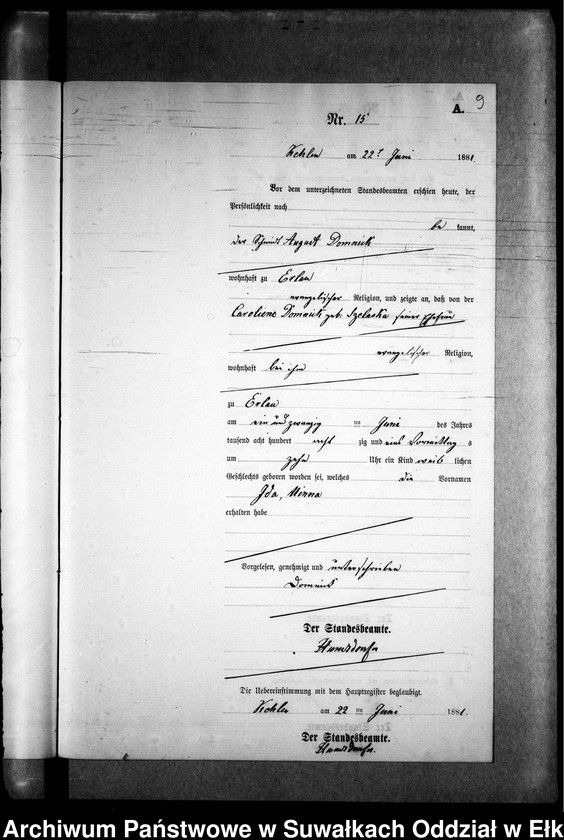 A. 9
Nr. 15
am 22t Juni 1881.
Vor dem unterzeichneten Standesbeamten erschien heute, der
Persönlichkeit nach
be kannt,
der Schmidt August Domnick
wohnhaft zu Erlau
evangelischer Religion, und zeigte an, daß von der
Caroliene Domnick geb. seiner Ehefrau
evangelischer Religion,
wohnhaft bei ihm
zu Erlau
am ein und zwanzig ten Juni des Jahres
tausend acht hundert acht zig und eins Vormittag s
um zehn Uhr ein Kind weib lichen
Geschlechts geboren worden sei, welches die Vornamen
Ida, Minna
erhalten habe
Vorgelesen, genehmigt und unterschrieben
Domnick
Der Standesbeamte.
Die Uebereinstimmung mit dem Hauptregister beglaubigt.
am 22 ten Juni 1881.
Der Standesbeamte.
Archiwum Państwowe w Suwałkach Oddział w Ełk